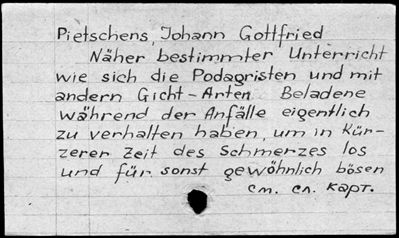 Pietschens, Johann Gottfried
Näher bestimmter Unterricht
wie sich die Podagristen und mit
andern Gicht-Arten Beladene
während der Anfälle eigentlich
zu verhalten haben, um in Kür-
zerer Zeit des Schmerzes los
und für sonst gewöhnlich bösen
см. сл. карт.